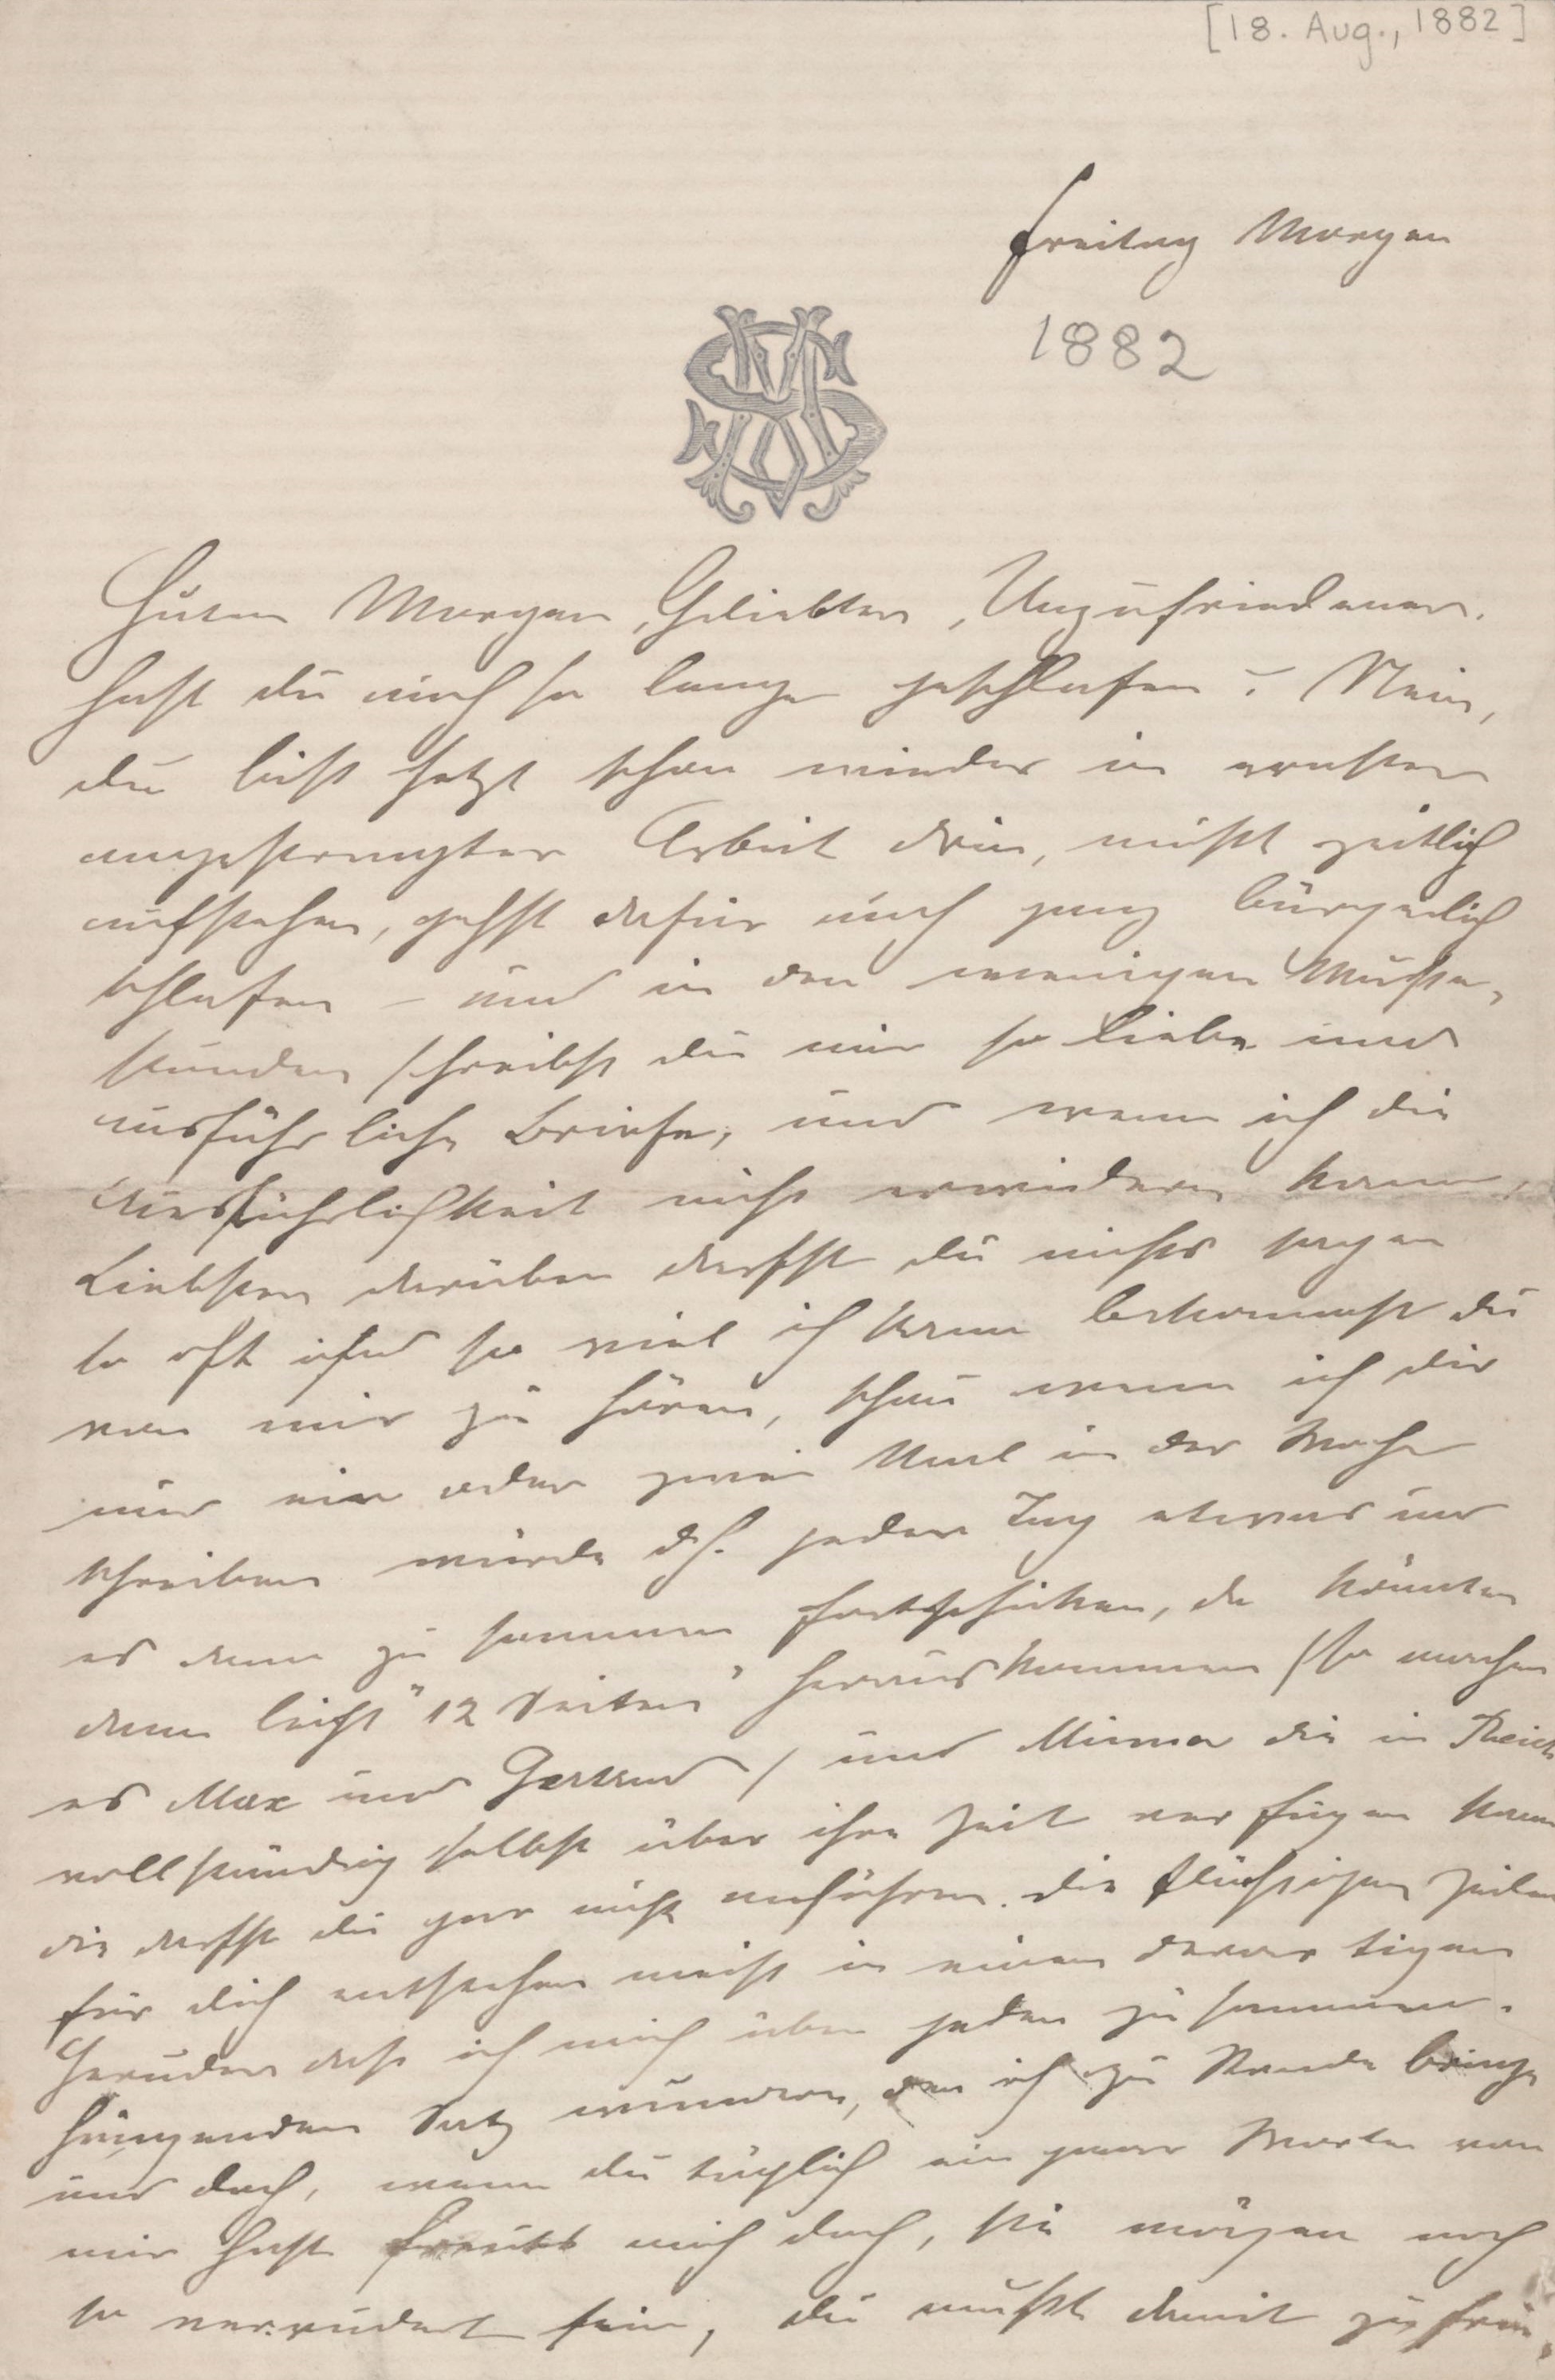 [18. Aug., 1882]
Freitag Morgen
1882
MS
Guten Morgen, Geliebter, Unzufriedener.
hast du auch so lange geschlafen? Nein,
du bist jetzt schon wieder in ernster
angestrengter Arbeit drin, mußt zeitlich
aufstehen, gehst dafür auch ganz bürgerlich
schlafen – und in den wenigen Muße-
stunden schreibst du mir so liebe und
ausführliche Briefe, und wenn ich die
Ausführlichkeit nicht erwidern kann,
Liebster darüber darfst du nichts sagen
so oft und so viel ich kann bekommst du
von mir zu hören, schau wenn ich dir
nur ein oder zwei Mal in der Woche
schreiben würde d.h. jeden Tag etwas und
es dann zusammen fortschicken, da könnten
dann leicht "12 Seiten" herauskommen (so machen
es Max und Gertrud) und Minna die in Reich
vollständig selbst über ihre Zeit verfügen kann
die darfst du gar nicht anführen. die flüchtigen Zeilen
für dich entstehen meist in einem derartigen
Getrudel daß ich mich über jeden zusammen-
hängenden Satz wundere, den ich zu Stande bringe
und doch, wenn du täglich ein paar Worte von
mir hast freuts mich doch, sie mögen noch
so verrudert sein, du mußt damit zufrie-